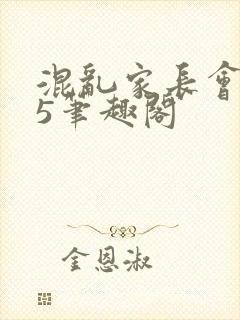 混亂家長會
5筆趣閣
金恩淑